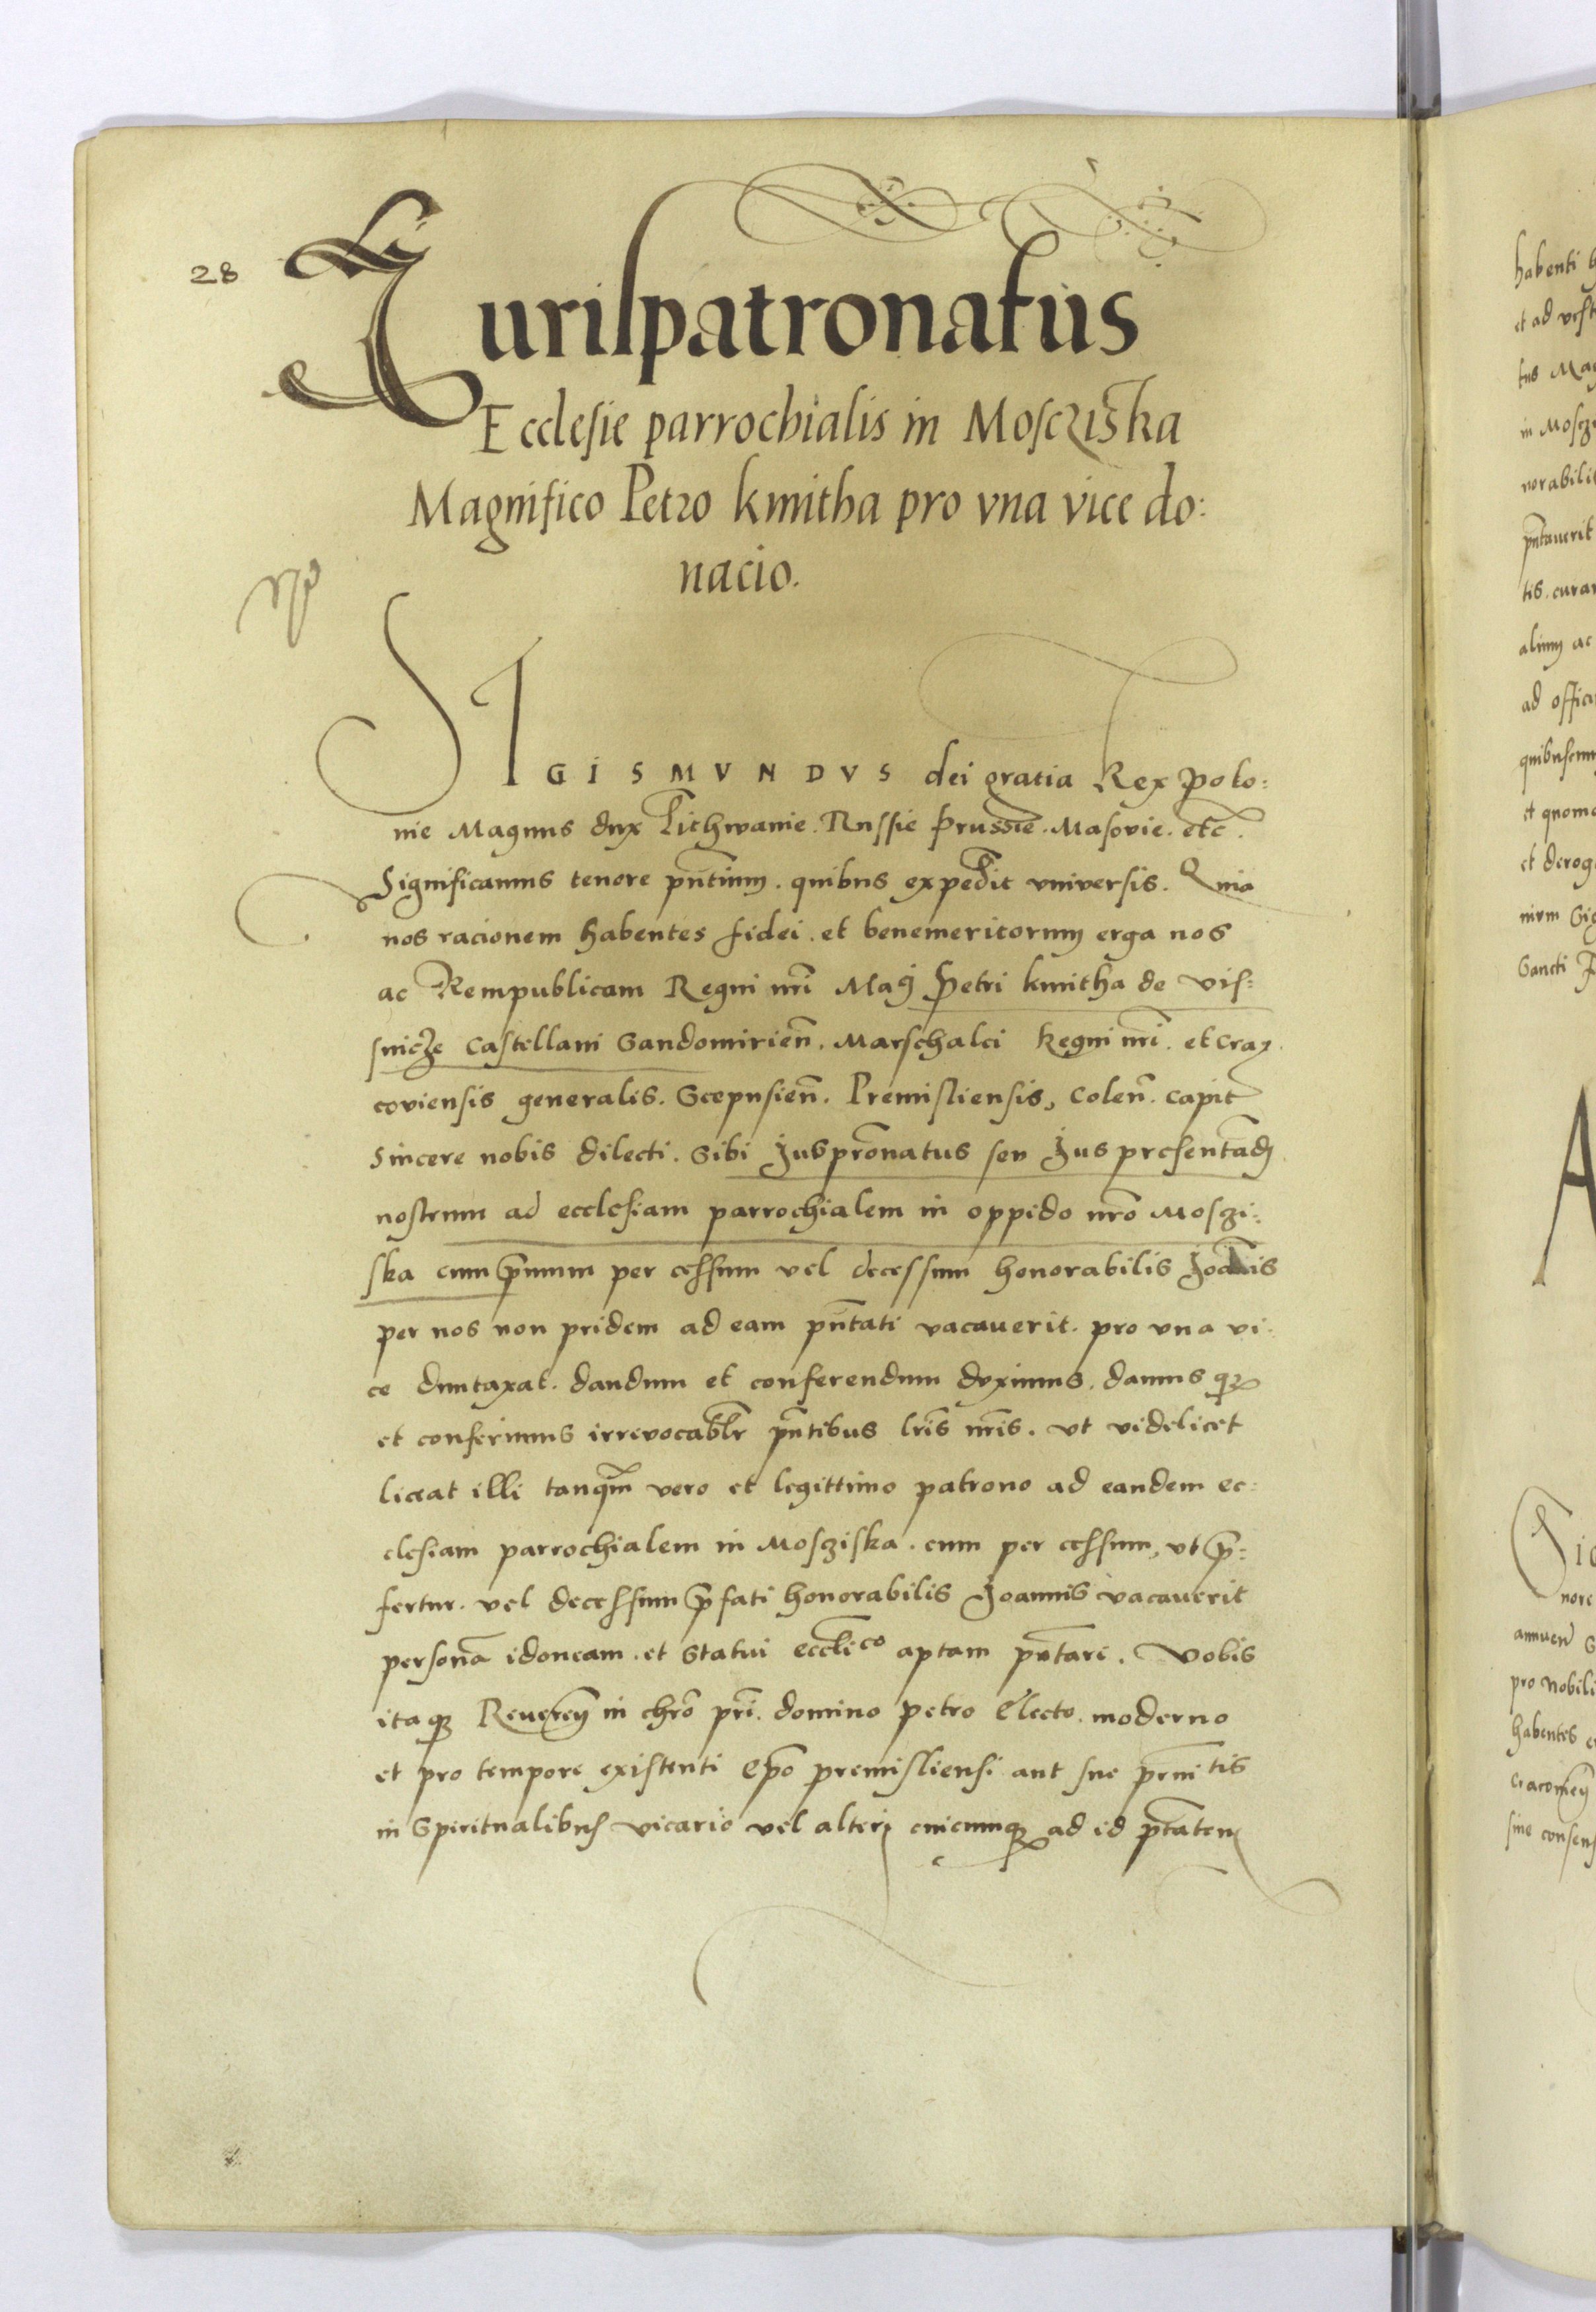 28
Jurispatronatus
Ecclesie parrochialis in Mosczis̄ka
Magnifico Petro kmitha pro vna vice do:
nacio.
SIGISMVNDVS dei gratia Rex Polo:
nie Magnus dux Lithwanie. Russie Prussie. Masovie. etc̄.
Significamus tenore pn̄tium. quibus expedit vniversis. Quia
nos racionem habentes fidei. et benemeritorum erga nos
ac Rempublicam Regni nr̄i Maḡ Petri kmitha de Vis:
snicze Castellani Sandomirien̄. Marschalci Regni nr̄i. et Cra
coviensis generalis. Scepusien̄. Premisliensis, Colen̄. Capit
Sincere nobis dilecti. Sibi Juspr̄onatus seu Jus presentād
nostrum ad ecclesiam parrochialem in oppido nr̄o Mosczi:
ska cum primum per cessum vel decessum honorabilis Joānis
per nos non pridem ad eam pn̄tati vacaverit. pro vna vi:
ce duntaxat. dandum et conferendum duximus. damusqꝫ
et conferimus irrevocablr̄ pn̄tibus lr̄is nr̄is. vt videlicet
liceat illi tanq̄m vero et legittimo patrono ad eandem ec:
clesiam parrochialem in Mosciska. cum per cessum, vt p̄:
fertur. vel decessum p̄fati honorabilis Joannis vacaverit
personā idoneam. et statui eccl̄ico aptam pn̄tare. Vobis
itaqꝫ Reveren̄ in chr̄o pr̄i. domino Petro Electo. moderno
et pro tempore existenti Ep̄o premisliensi aut sue
in Spiritualibus vicario vel alteri cuicumqꝫ ad id
habenti
et ad
in
tis.
ac
ad
et
et
Sancti
A
pro nobili
habentes